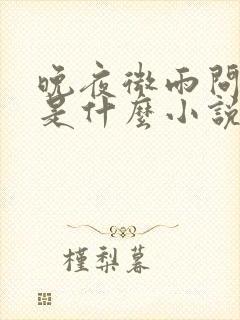 晚夜微雨問
是什麼小說
槿梨暮